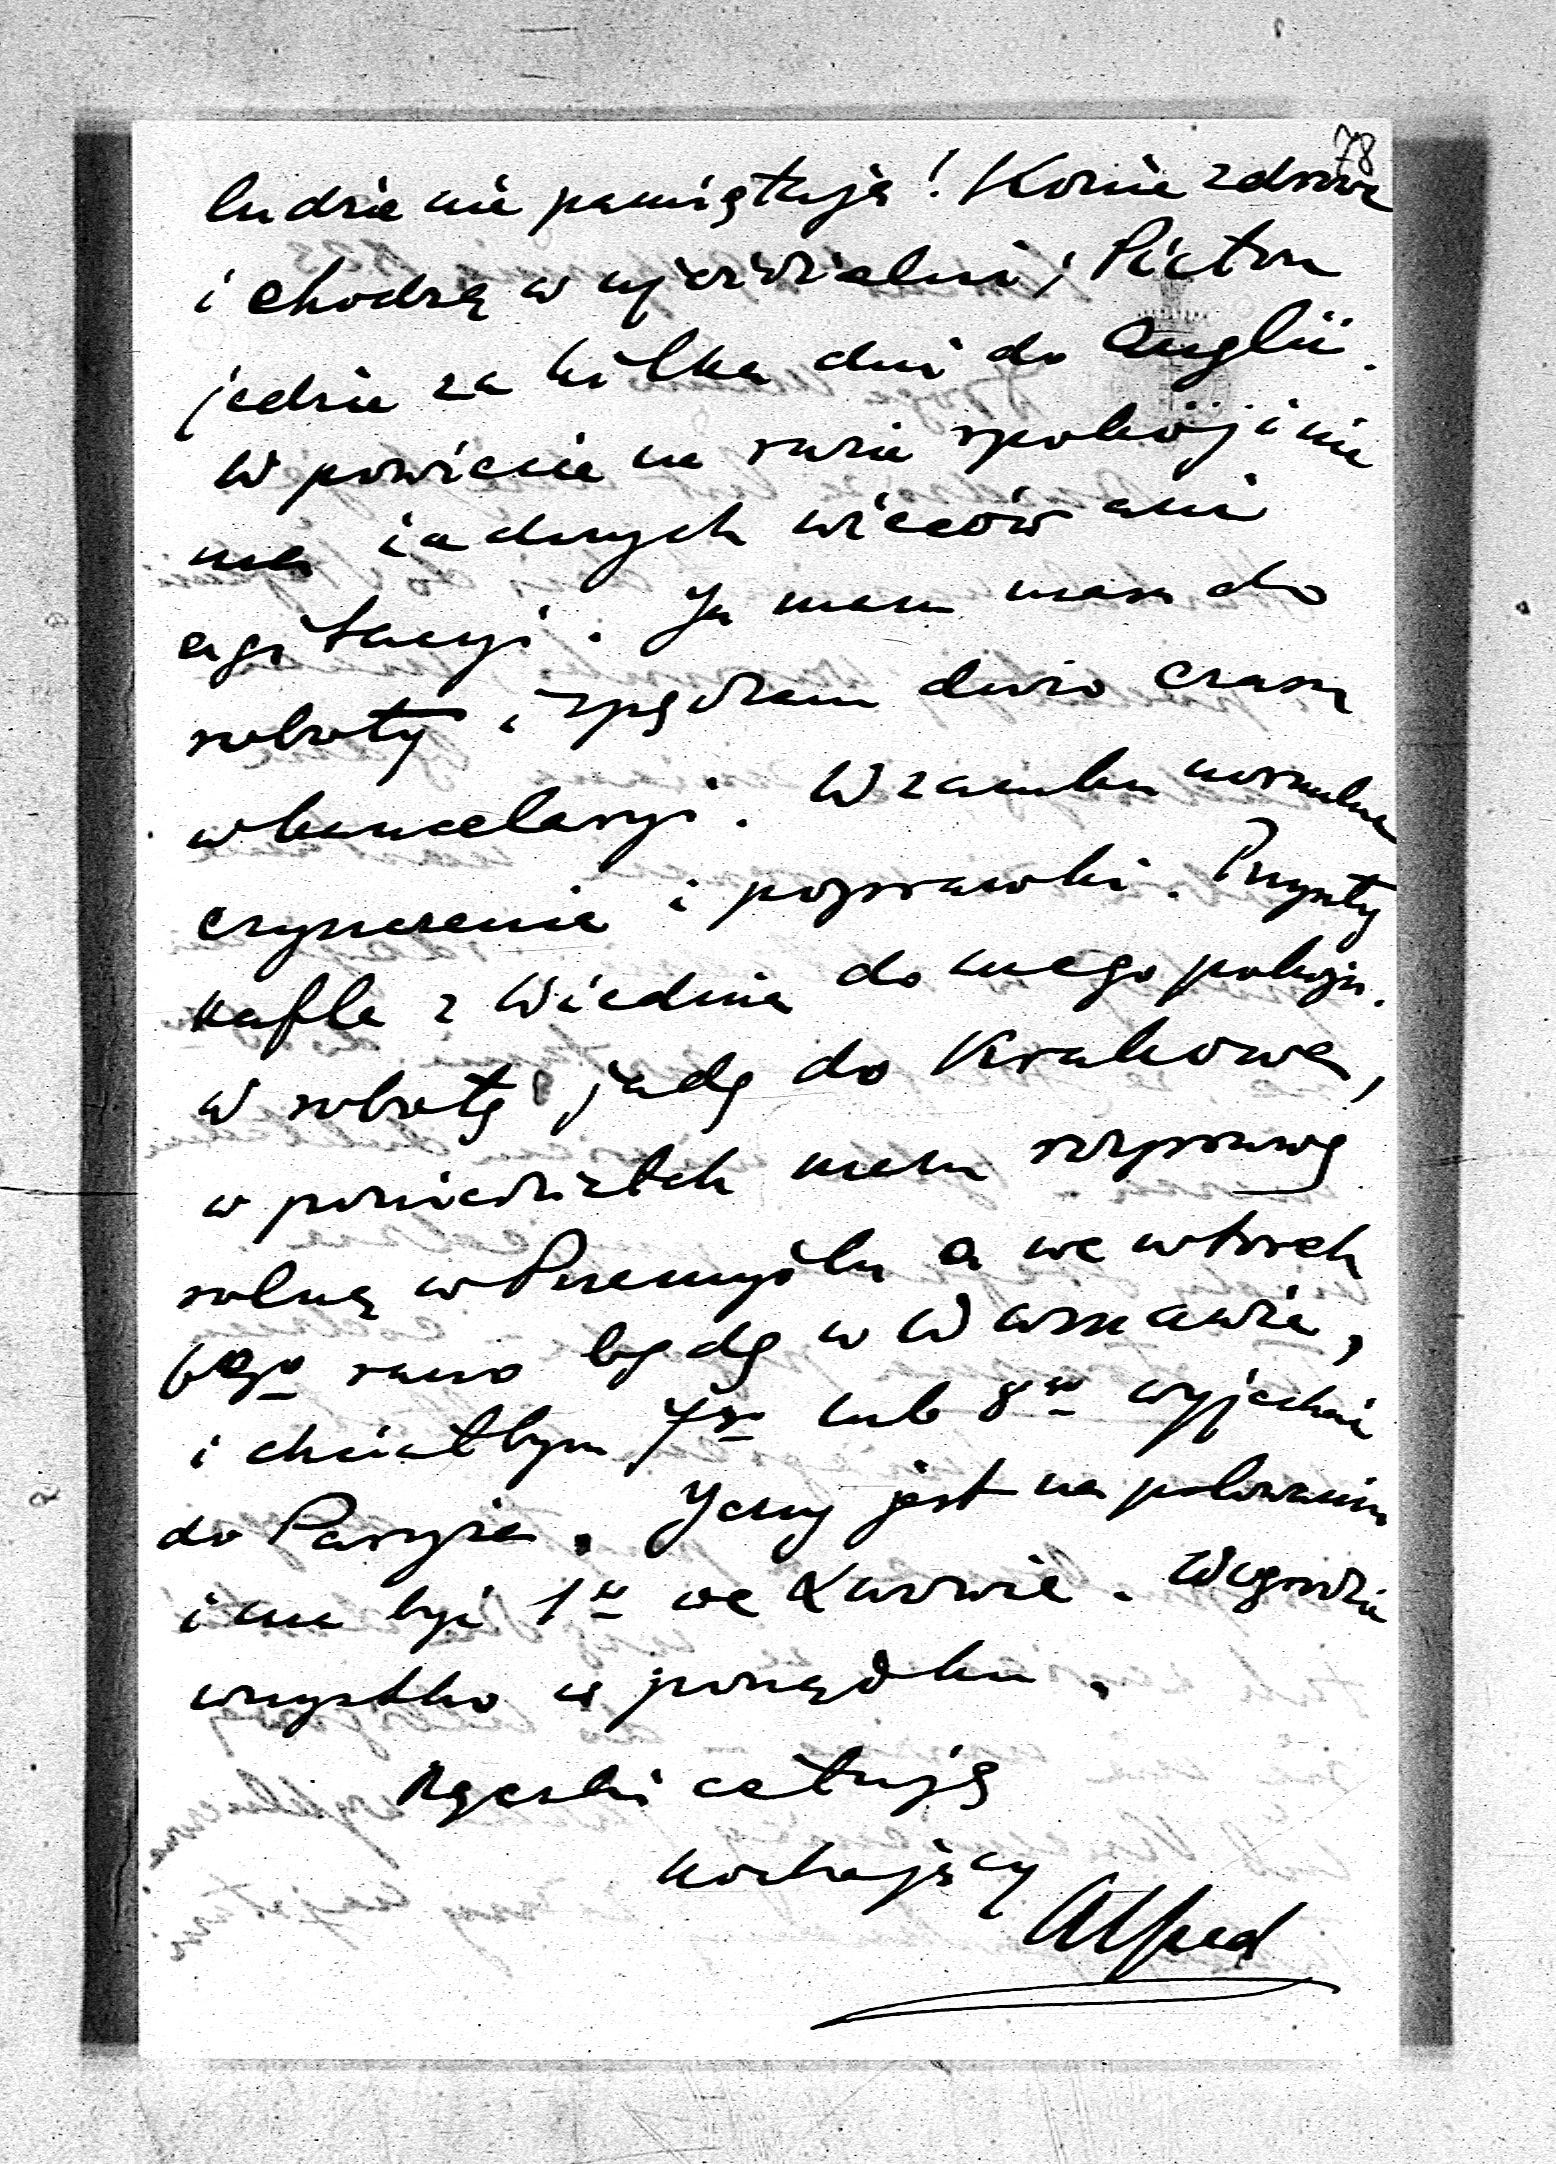 78
ludzie nie pamiętają! Konie zdrowe
i chodzą w ujeżdżalni; Picton
jedzie za kilka dni do Anglii.
W powiecie na razie spokój i nie
ma żadnych wieców ani
agitacyi. Ja mam masę do
roboty i spędzam dużo czasu
w kancelaryi. W zamku normalne
czyszczenie i poprawki. Przyszły
kafle z Wiednia do mego pokoju.
W sobotę jadę do Krakowa,
w poniedziałek mam rozprawę
rolną w Przemyślu a we wtorek
6go rano będę w Warszawie,
i chciałbym 7go lub 8go wyjechać
do Paryża. Jerzy jest na polowaniu
i ma być 1go we Lwowie. W ogrodzie
wszystko w porządku.
Rączki całuję
kochający
Alfred